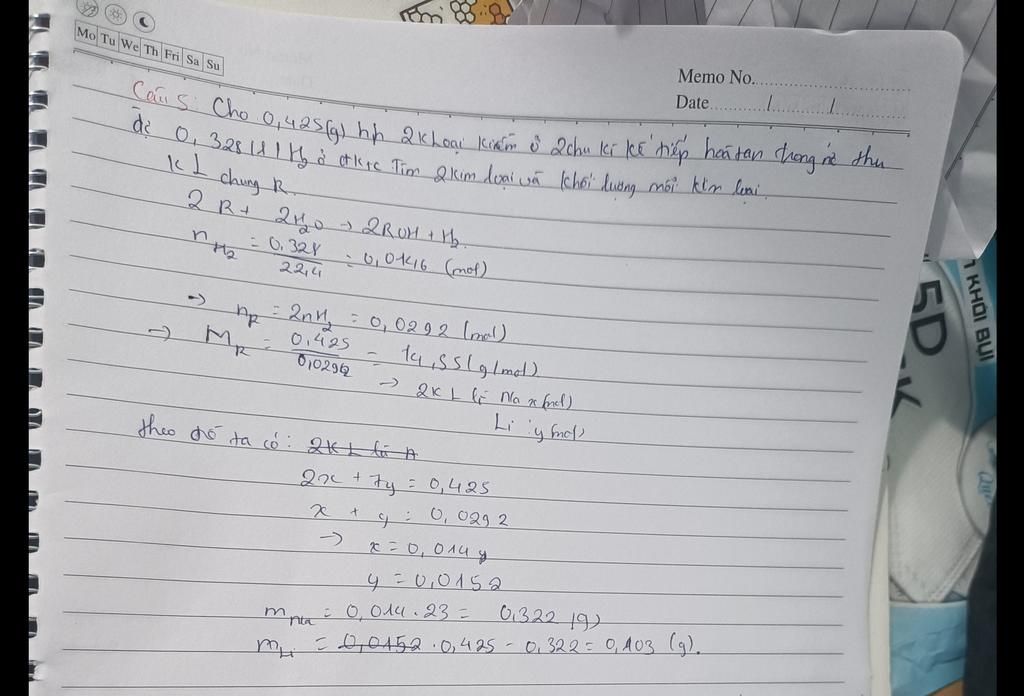 Mo Tu We Th Fri Sa Su
Memo No.
Date / /
Câu 5: Cho 0,425(g) hh 2 kloại kiềm ở 2 chu kì kế tiếp hoà tan trong nc thu
đc 0,328 (l) H2 ở đktc Tìm 2 kim loại và khối lượng mỗi kim loại.
KL chung R.
2R + 2H2O → 2ROH + H2.
nH2 = 0,328 / 22,4 = 0,0146 (mol)
→ nR = 2nH2 = 0,0292 (mol)
→ MR = 0,425 / 0,0292 = 14,55 (g/mol)
→ 2KL là Na x (mol)
Li : y (mol)
theo đó ta có: 2KL là
2x + 7y = 0,425
x + y = 0,0292
→ x = 0,014
y = 0,0152
mNa = 0,014 . 23 = 0,322 (g)
mLi = 0,0152 . 0,425 - 0,322 = 0,103 (g).
5D
KHÓI BỤI